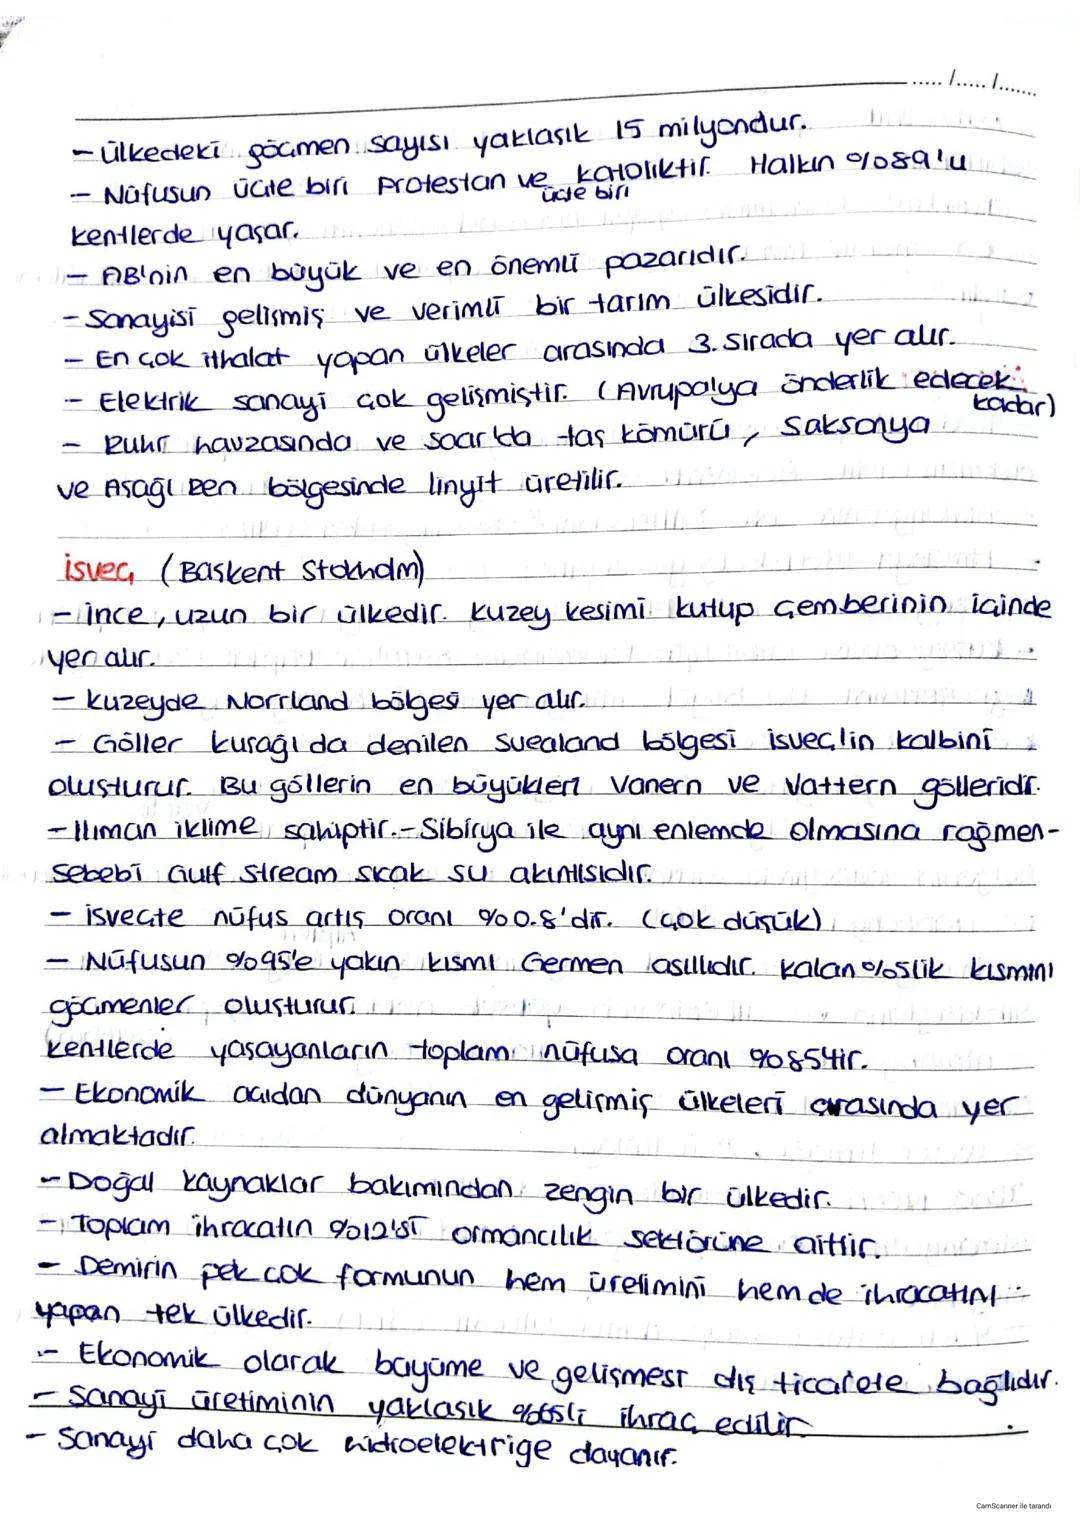 ...../...../.......
- Ülkedeki göçmen sayısı yaklaşık 15 milyondur.
- Nüfusun üçte biri Protestan ve üçte biri Katoliktir. Halkın %89'u
kentlerde yaşar.
- AB'nin en büyük ve en önemli pazarıdır.
- Sanayisi gelişmiş ve verimli bir tarım ülkesidir.
- En çok ithalat yapan ülkeler arasında 3. sırada yer alır.
- Elektrik sanayi çok gelişmiştir. (Avrupa'ya önderlik edecek kadar)
- Ruhr havzasında ve Saar'da taş kömürü, Saksonya
ve Aşağı Ren bölgesinde linyit üretilir.
İsveç (Başkent Stokholm)
- İnce, uzun bir ülkedir. Kuzey kesimi kutup çemberinin içinde
yer alır.
- Kuzeyde Norrland bölgesi yer alır.
- Göller kuşağı da denilen Svealand bölgesi İsveç'in kalbini
oluşturur. Bu göllerin en büyükleri Vanern ve Vattern gölleridir.
- Ilıman iklime sahiptir. - Sibirya ile aynı enlemde olmasına rağmen -
Sebebi Gulf Stream sıcak su akıntısıdır.
- İsveçte nüfus artış oranı %0.8'dir. (çok düşük)
- Nüfusun %95'e yakın kısmı Germen asıllıdır. Kalan %5lik kısmını
göçmenler oluşturur.
Kentlerde yaşayanların toplam nüfusa oranı %85'tir.
- Ekonomik açıdan dünyanın en gelişmiş ülkeleri arasında yer
almaktadır.
- Doğal kaynaklar bakımından zengin bir ülkedir.
- Toplam ihracatın %12'si ormancılık sektörüne aittir.
- Demirin pek çok formunun hem üretimini hem de ihracatını
yapan tek ülkedir.
- Ekonomik olarak büyüme ve gelişmesi dış ticarete bağlıdır.
- Sanayi üretiminin yaklaşık %65'i ihraç edilir.
- Sanayi daha çok hidroelektriğe dayanır.
CamScanner ile tarandı